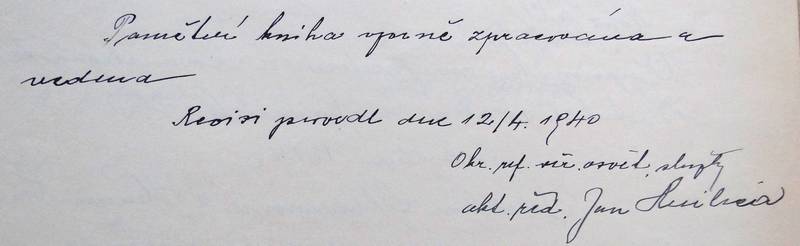 Pamětní kniha vzorně zpracována a
vedena
Revisi provedl dne 12/4. 1940
Okr. ref. osvět. služby
Jan